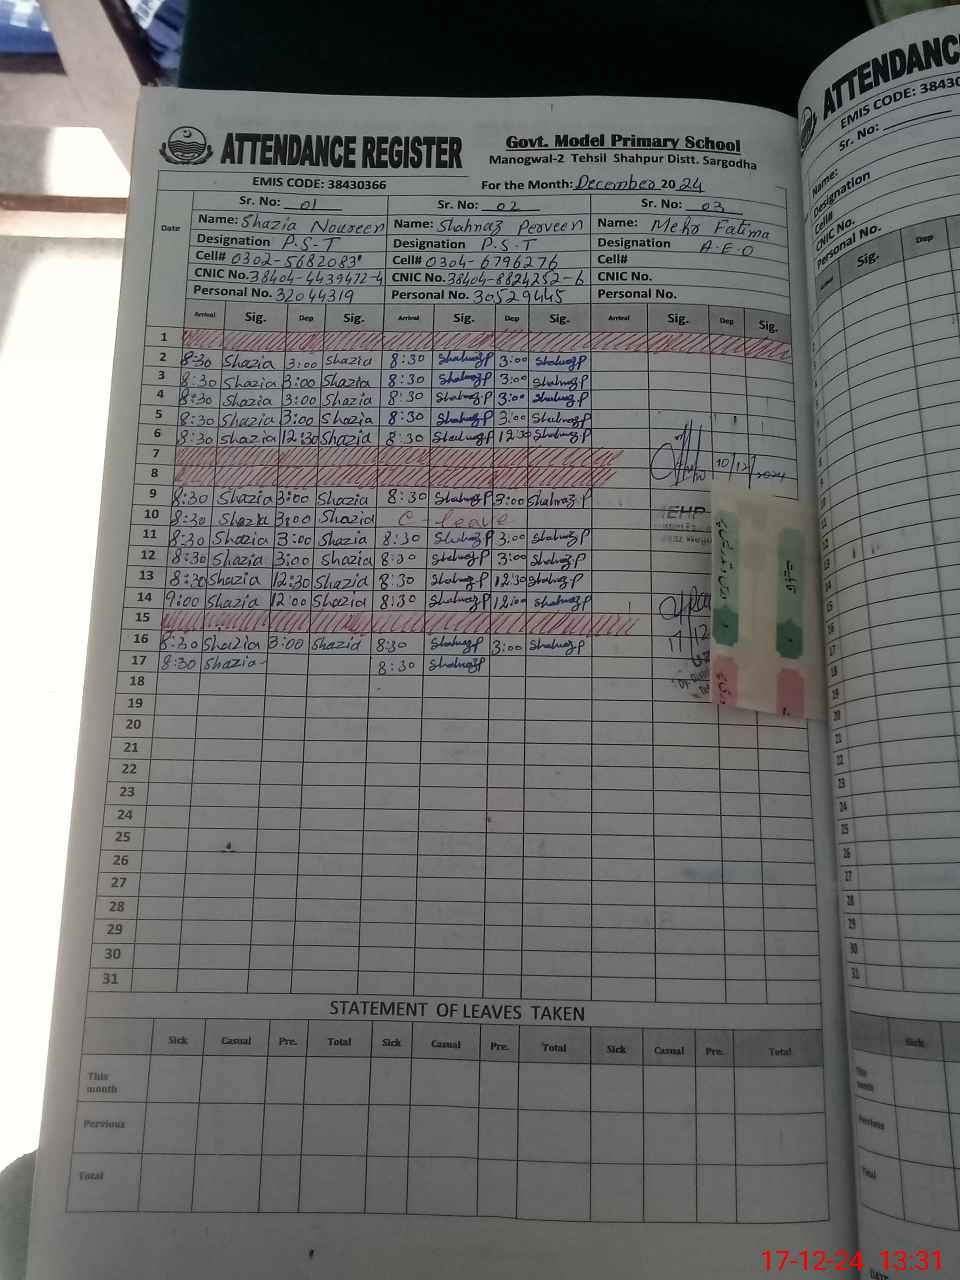 ATTENDANCE REGISTER
Govt. Model Primary School
Manogwal-2 Tehsil Shahpur Distt. Sargodha
EMIS CODE: 38430366 For the Month: December 2024
Date Sr. No: 01 Sr. No: 02 Sr. No: 03
Name: Shazia Noureen Name: Shahnaz Perveen Name: Mehr Fatima
Designation P.S.T Designation P.S.T Designation A.E.O
Cell# 0302-5682083 Cell# 0304-6796276 Cell#
CNIC No. 38404-4439472-4 CNIC No. 38404-8824252-6 CNIC No.
Personal No. 32044319 Personal No. 30529445 Personal No.
Arrival Sig. Dep Sig. Arrival Sig. Dep Sig. Arrival Sig. Dep Sig.
1
2 8:30 Shazia 3:00 Shazia 8:30 ShahnazP 3:00 ShahnazP
3 8:30 Shazia 3:00 Shazia 8:30 ShahnazP 3:00 ShahnazP
4 8:30 Shazia 3:00 Shazia 8:30 ShahnazP 3:00 ShahnazP
5 8:30 Shazia 3:00 Shazia 8:30 ShahnazP 3:00 ShahnazP
6 8:30 Shazia 12:30 Shazia 8:30 ShahnazP 12:30 ShahnazP
7 10/12/2024
8
9 8:30 Shazia 3:00 Shazia 8:30 ShahnazP 3:00 ShahnazP
10 8:30 Shazia 3:00 Shazia C-leave
11 8:30 Shazia 3:00 Shazia 8:30 ShahnazP 3:00 ShahnazP
12 8:30 Shazia 3:00 Shazia 8:30 ShahnazP 3:00 ShahnazP
13 8:30 Shazia 12:30 Shazia 8:30 ShahnazP 12:30 ShahnazP
14 9:00 Shazia 12:00 Shazia 8:30 ShahnazP 12:00 ShahnazP
15
16 8:30 Shazia 3:00 Shazia 8:30 ShahnazP 3:00 ShahnazP
17 8:30 Shazia 8:30 ShahnazP
18
19
20
21
22
23
24
25
26
27
28
29
30
31
STATEMENT OF LEAVES TAKEN
Sick Casual Pre. Total Sick Casual Pre. Total Sick Casual Pre. Total
This month
Pervious
Total
ATTENDANC
EMIS CODE: 3843
Sr. No:
Name:
Designation
Cell#
CNIC No.
Personal No.
Sig. Dep
Sick
17-12-24 13:31